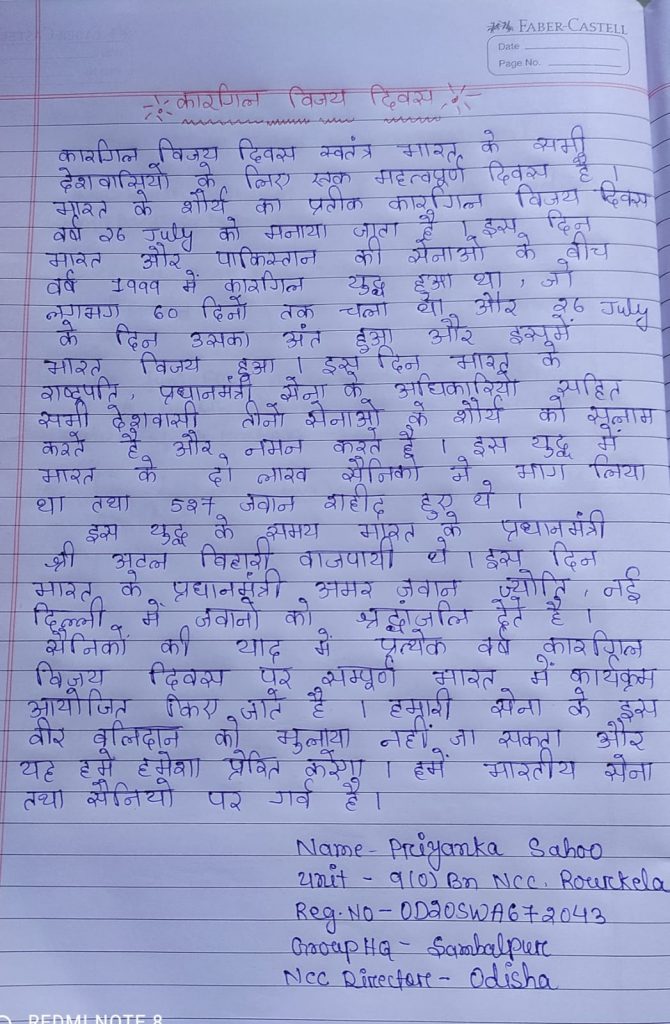 FABER-CASTELL
Date
Page No.
कारगिल विजय दिवस
कारगिल विजय दिवस स्वतंत्र भारत के सभी
देशवासियों के लिए एक महत्वपूर्ण दिवस है ।
भारत के शौर्य का प्रतीक कारगिल विजय दिवस
वर्ष 26 July को मनाया जाता है । इस दिन
भारत और पाकिस्तान की सेनाओं के बीच
वर्ष 1999 में कारगिल युद्ध हुआ था, जो
लगभग 60 दिनों तक चला था और 26 July
के दिन उसका अंत हुआ और इसमें
भारत विजय हुआ । इस दिन भारत के
राष्ट्रपति, प्रधानमंत्री सेना के अधिकारियों सहित
सभी देशवासी तीनों सेनाओं के शौर्य को सलाम
करते है और नमन करते है । इस युद्ध में
भारत के दो लाख सैनिकों ने भाग लिया
था तथा 527 जवान शहीद हुए थे ।
इस युद्ध के समय भारत के प्रधानमंत्री
श्री अटल बिहारी वाजपायी थे । इस दिन
भारत के प्रधानमंत्री अमर जवान ज्योति, नई
दिल्ली में जवानों को श्रद्धांजलि देते है ।
सैनिकों की याद में प्रत्येक वर्ष कारगिल
विजय दिवस पर सम्पूर्ण भारत में कार्यक्रम
आयोजित किए जाते है । हमारी सेना के इस
वीर बलिदान को भुलाया नहीं जा सकता और
यह हमें हमेशा प्रेरित करेगा । हमें भारतीय सेना
तथा सैनियों पर गर्व है ।
Name - Priyanka Sahoo
Unit - 9(O) Bn NCC. Rourkela
Reg. No - OD20SWA672043
Group HQ - Sambalpur
NCC Director - Odisha
REDMI NOTE 8